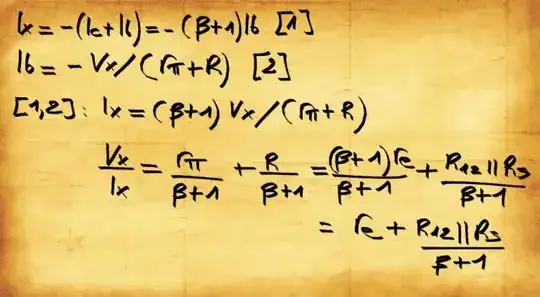 Ix = -(Ic+Ib) = -(β+1)Ib [1]
Ib = -Vx/(rπ+R) [2]
[1,2]: Ix = (β+1) Vx/(rπ+R)
Vx/Ix = rπ/(β+1) + R/(β+1) = (β+1)re/(β+1) + R12||Rs/(β+1)
= re + R12||Rs/(β+1)